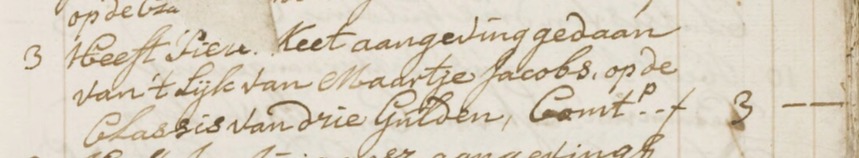 op de
3 Heeft Sieu. Keet aangeving gedaan
van 't Lijk van Maartje Jacobs, op de
Classis van drie Gulden, Comt p.. f 3 —
aangeving